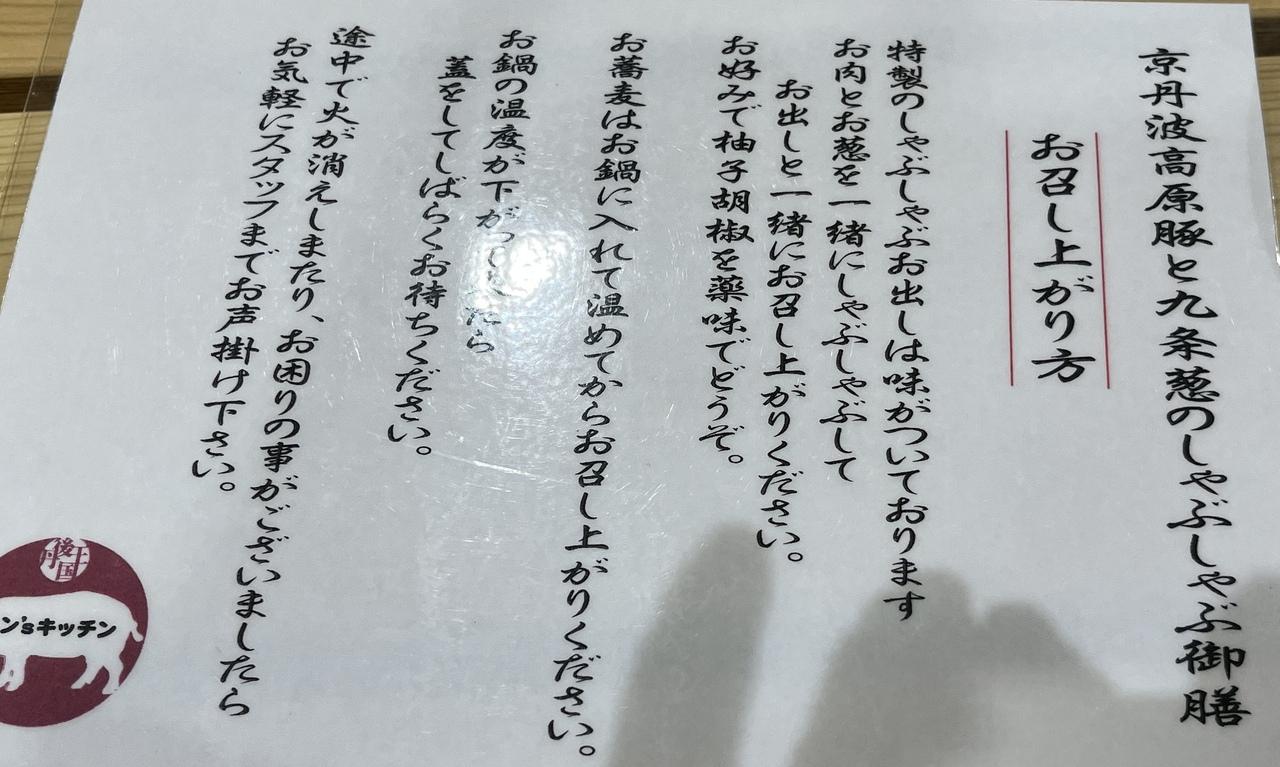 京丹波高原豚と九条葱のしゃぶしゃぶ御膳
お召し上がり方
特製のしゃぶしゃぶお出しは味がついております
お肉とお葱を一緒にしゃぶしゃぶして
お出しと一緒にお召し上がりください。
お好みで柚子胡椒を薬味でどうぞ。
お蕎麦はお鍋に入れて温めてからお召し上がりください。
お鍋の温度が下がったら
蓋をしてしばらくお待ちください。
途中で火が消えしまたり、お困りの事がございましたら
お気軽にスタッフまでお声掛け下さい。
丹後王国
ン'sキッチン